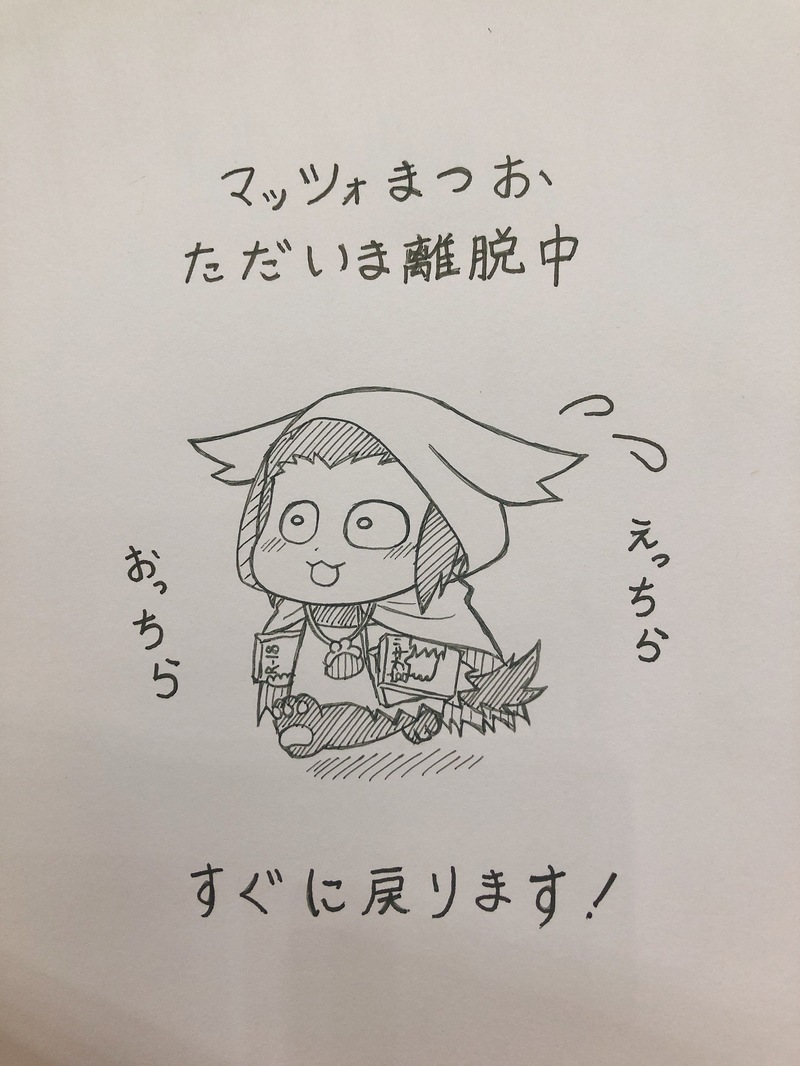 マッツォまつお
ただいま離脱中
えっちら
おっちら
R-18
すぐに戻ります!